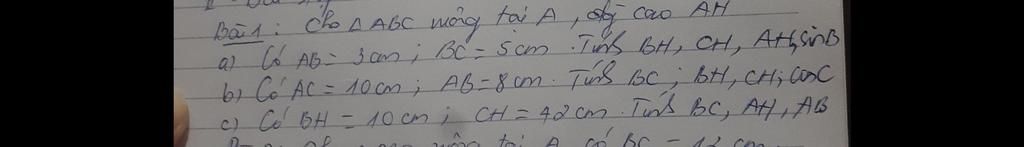 Bài 1: Cho △ABC vuông tại A, đg cao AH
a) Có AB = 3cm; BC = 5cm. Tính BH, CH, AH, sinB
b) Có AC = 10cm; AB = 8cm. Tính BC; BH, CH; cosC
c) Có BH = 10cm; CH = 42cm. Tính BC, AH, AB
tại A có BC = 12 cm